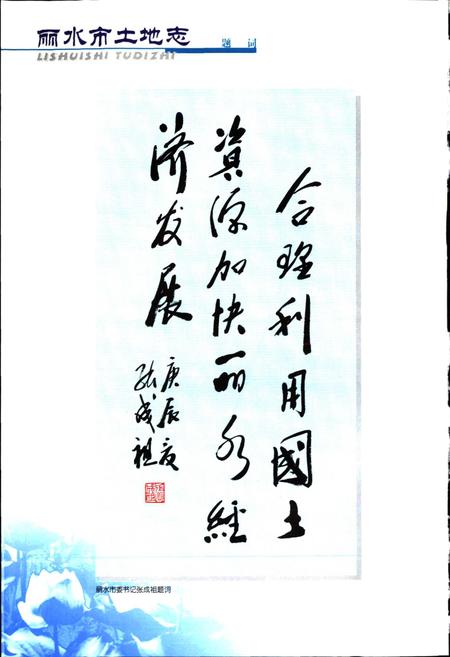 丽水市土地志
LISHUISHI TUDIZHI
题 词
合理利用國土
資源加快丽水经
济发展
庚辰夏
张成祖
丽水市委书记张成祖题词